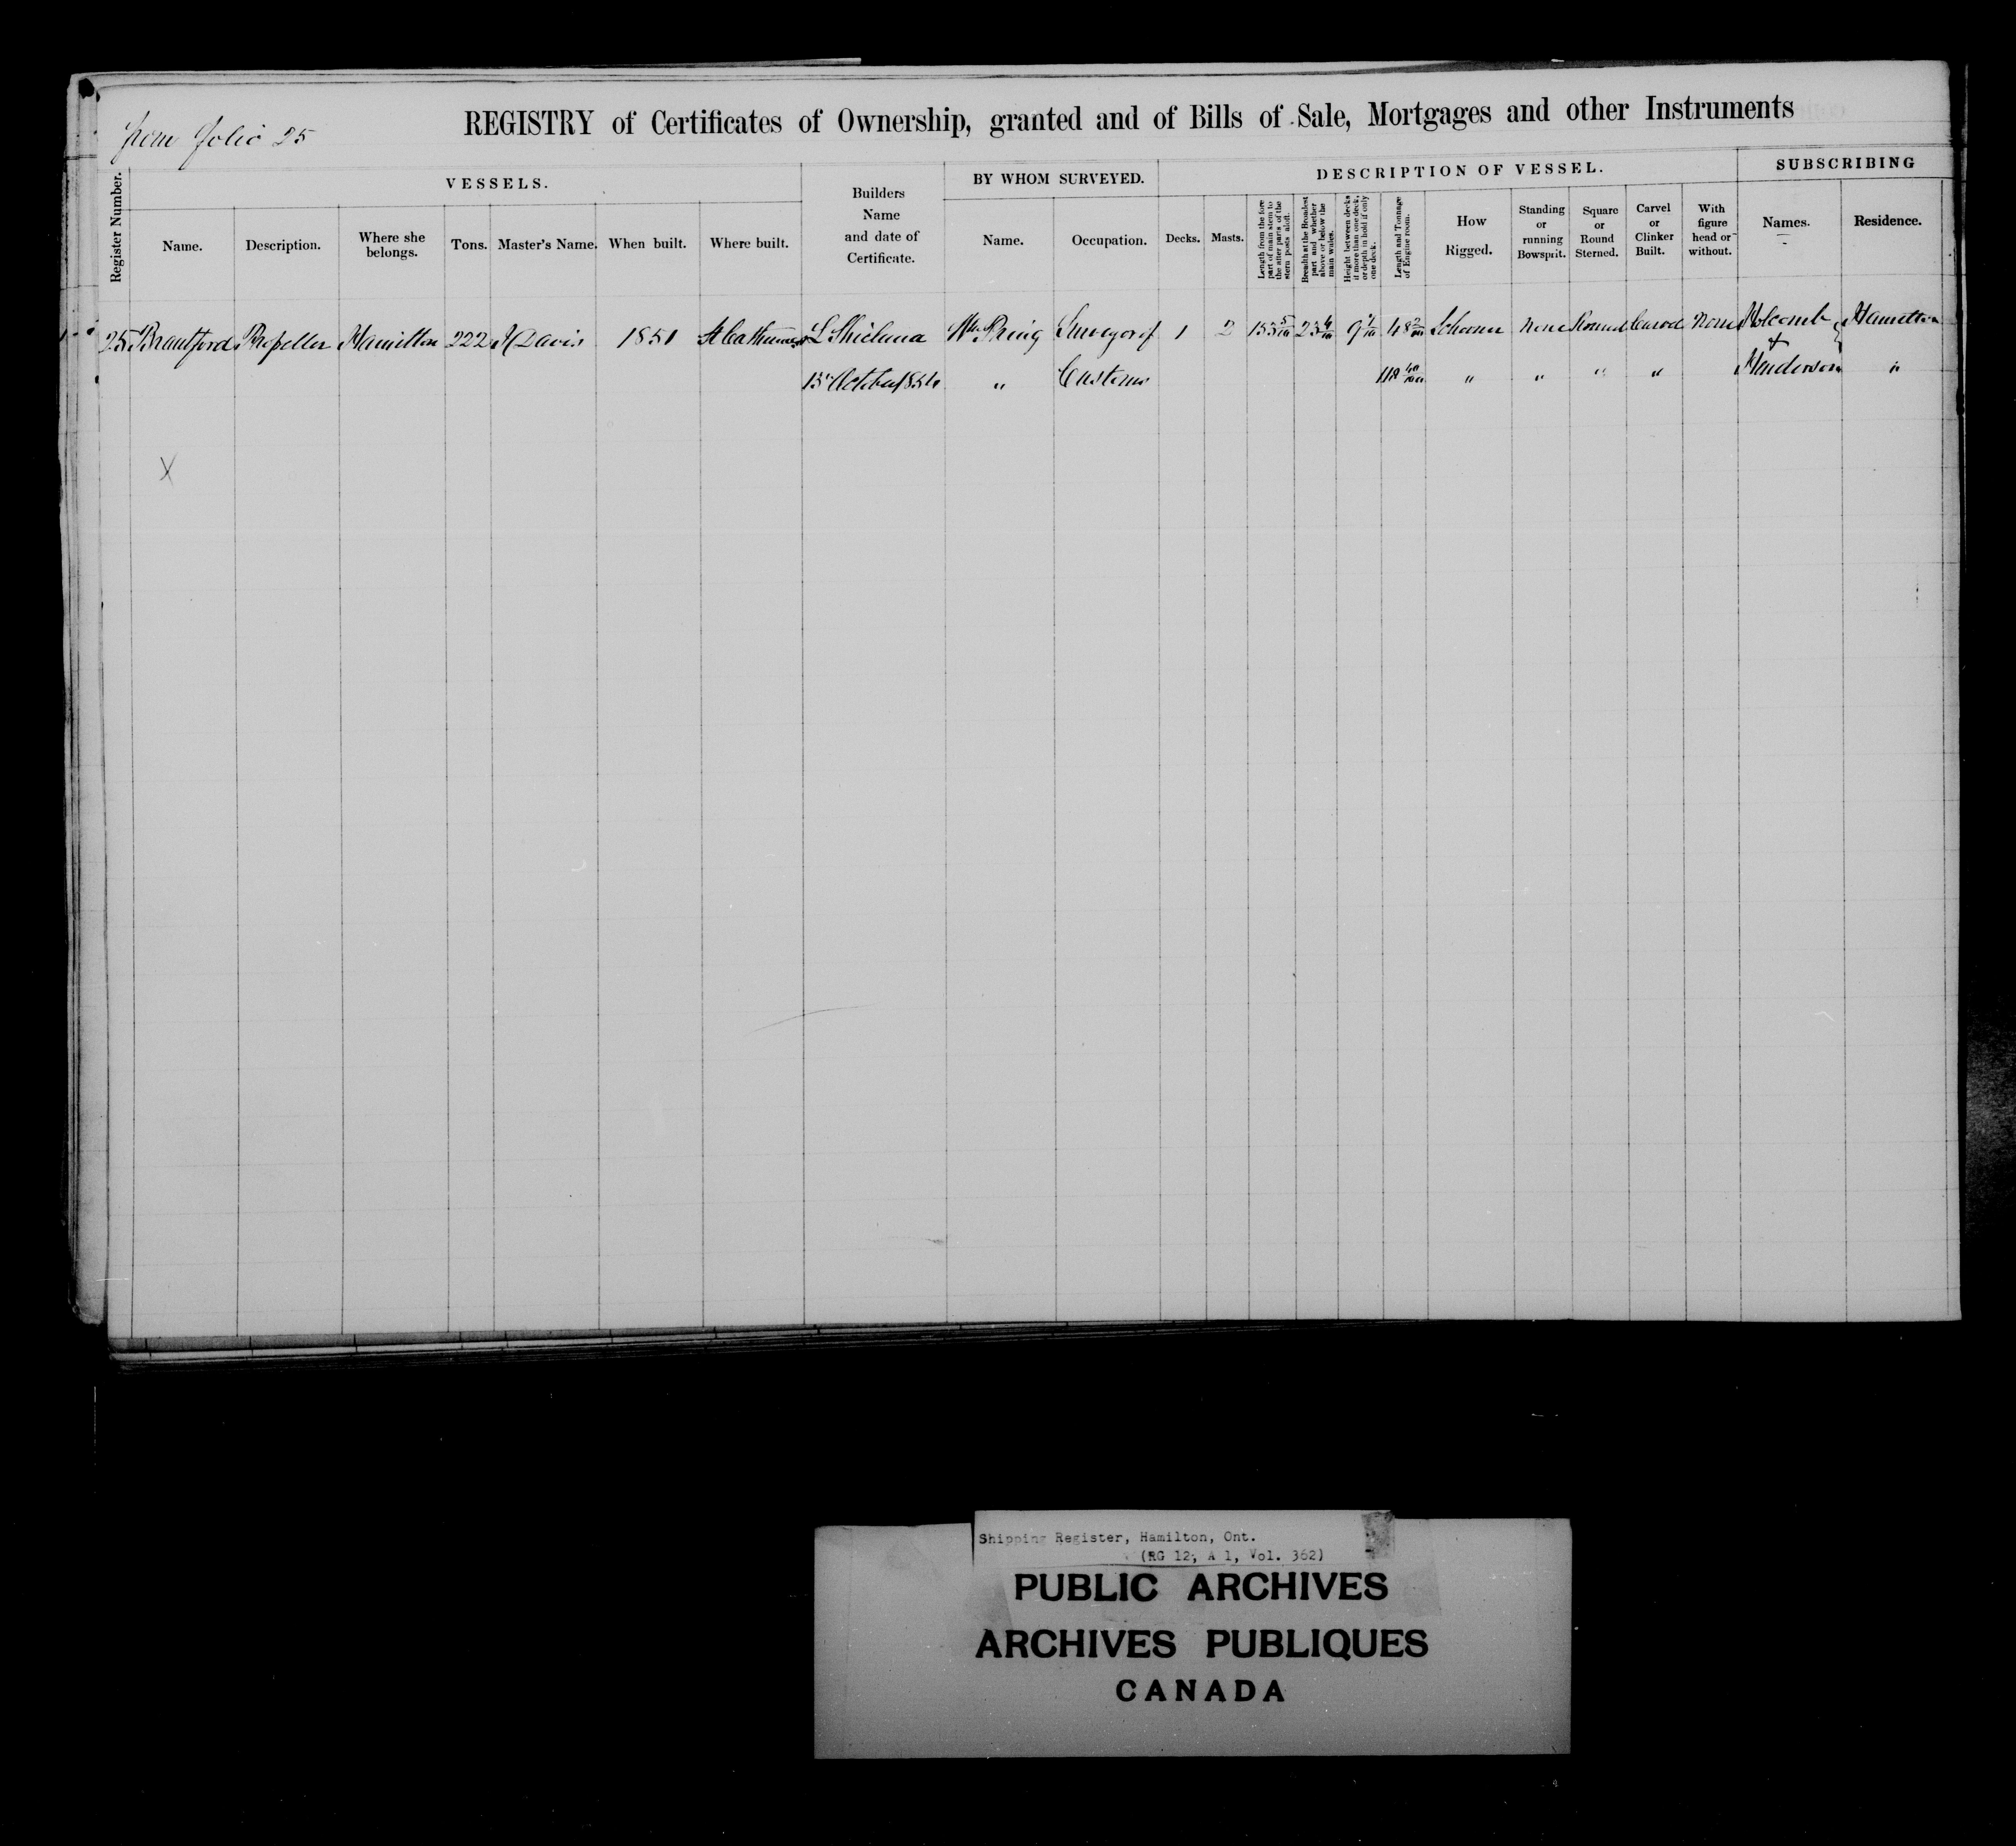 from folio 25
REGISTRY of Certificates of Ownership, granted and of Bills of Sale, Mortgages and other Instruments
Register Number.
VESSELS.
Name.
Description.
Where she belongs.
Tons.
Master's Name.
When built.
Where built.
Builders
Name
and date of
Certificate.
BY WHOM SURVEYED.
Name.
Occupation.
DESCRIPTION OF VESSEL.
Decks.
Masts.
Length from the fore part of main stem to the after parts of the stern posts aloft.
Breadth at the Broadest part and whether above or below the main wales.
Height between decks if more than one deck, or depth in hold if only one deck.
Length and Tonnage of Engine room.
How
Rigged.
Standing
or
running
Bowsprit.
Square
or
Round
Sterned.
Carvel
or
Clinker
Built.
With
figure
head or
without.
SUBSCRIBING
Names.
Residence.
25 Brantford Propeller Hamilton 222 Davis 1851 St Catharines L Shicluna Wm Surveyor of 1 2 153 5/10 23 4/10 48 Schooner None Round Carvel None Holcomb & Hamilton
October " Customs 118 " " " " Henderson "
X
Shipping Register, Hamilton, Ont.
(RG 12, A 1, Vol. 362)
PUBLIC ARCHIVES
ARCHIVES PUBLIQUES
CANADA